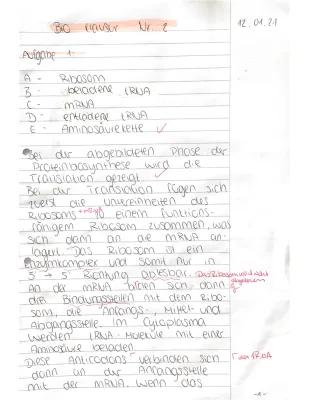 Bio Klausur Nr. 2
12.01.21
Aufgabe 1.
A - Ribosom
B - beladene tRNA
C - mRNA
D - entladene tRNA
E - Aminosäurekette
Bei der abgebildeten Phase der
Proteinbiosynthese wird die
Translation gezeigt.
Bei der Translation fügen sich
zuerst die Untereinheiten des
Ribosoms zu einem funktions-
fähigem Ribosom zusammen, was
sich dann an die mRNA an-
lagert. Das Ribosom ist ein
Enzymkomplex und somit nur in
5' → 3' Richtung ablesbar. Das Ribosom wird nicht
abgelesen
An der mRNA bilden sich dann
drei Bindungsstellen mit dem Ribo-
som, die Anfangs-, Mittel- und
Abgangsstelle. Im Cytoplasma
werden tRNA-Moleküle mit einer
Aminosäure beladen.
Diese Anticodons verbinden sich
der tRNA
dann an der Anfangsstelle
mit der mRNA. Wenn das
-1-